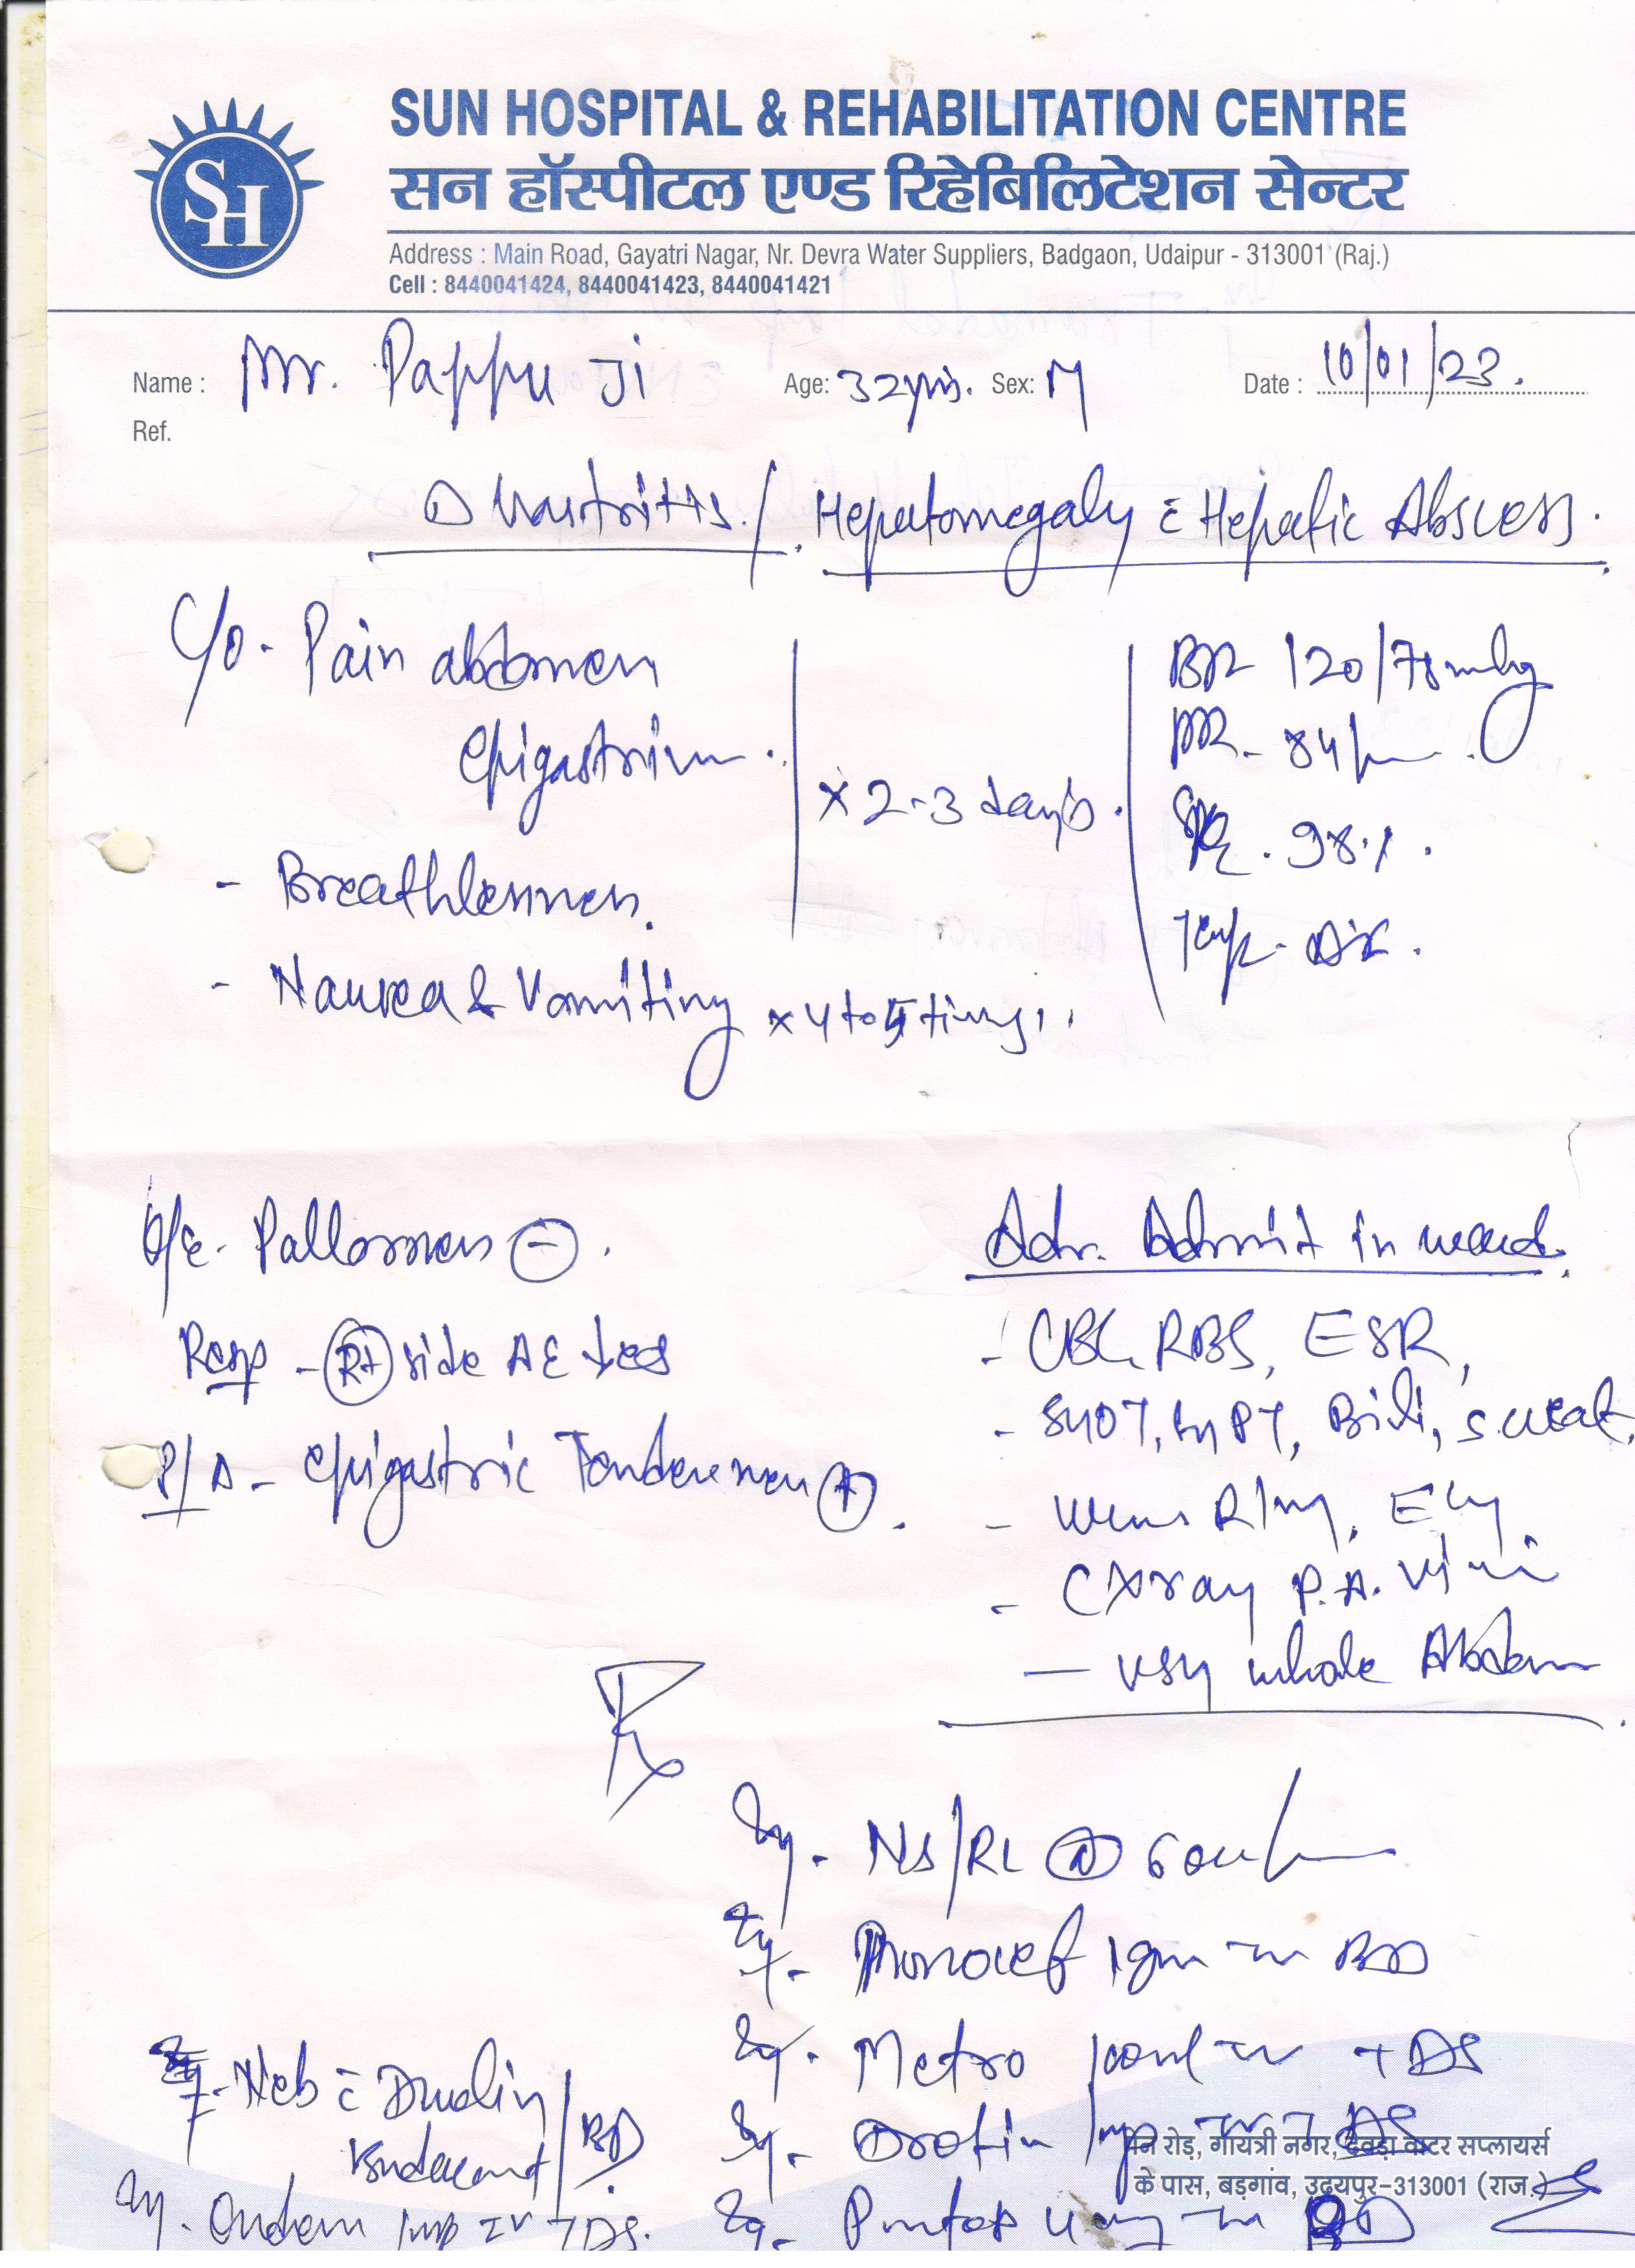 SH
SUN HOSPITAL & REHABILITATION CENTRE
सन हॉस्पीटल एण्ड रिहेबिलिटेशन सेन्टर
Address : Main Road, Gayatri Nagar, Nr. Devra Water Suppliers, Badgaon, Udaipur - 313001 (Raj.)
Cell : 8440041424, 8440041423, 8440041421
Name : Mr. Pappu Ji Age: 32yrs. Sex: M Date : 10/01/23.
Ref.
Gastritis. / Hepatomegaly c̄ Hepatic Abscess.
C/O - Pain abdomen
epigastrium.
- Breathlessness.
x 2-3 days.
- Nausea & Vomiting x 4 to 5 times.
BP- 120/78mmhg
PR- 84/m
SPO2. 98%.
Temp-
O/E- Pallorness (-).
Resp - (Rt) side AE ↓ses
P/A - epigastric Tenderness (+).
Adv. Admit in ward.
- CBC, RBS, ESR,
- SGOT, SGPT, Bili, S. creat,
- Urine R/M, ECG,
- C Xray P.A. View
- USG whole Abdomen
Rx
Inj. NS/RL @ 60ml/hr
Inj. Monocef 1gm IV BD
Inj. Metro 100ml IV TDS
Inj. Drotin 1amp IV TDS
Inj. Pantop 40mg IV BD
Neb c̄ Duolin
Budecort / BD.
Inj. Ondem 1amp IV TDS.
मेन रोड़, गायत्री नगर, देवड़ा वाटर सप्लायर्स
के पास, बड़गांव, उदयपुर-313001 (राज.)